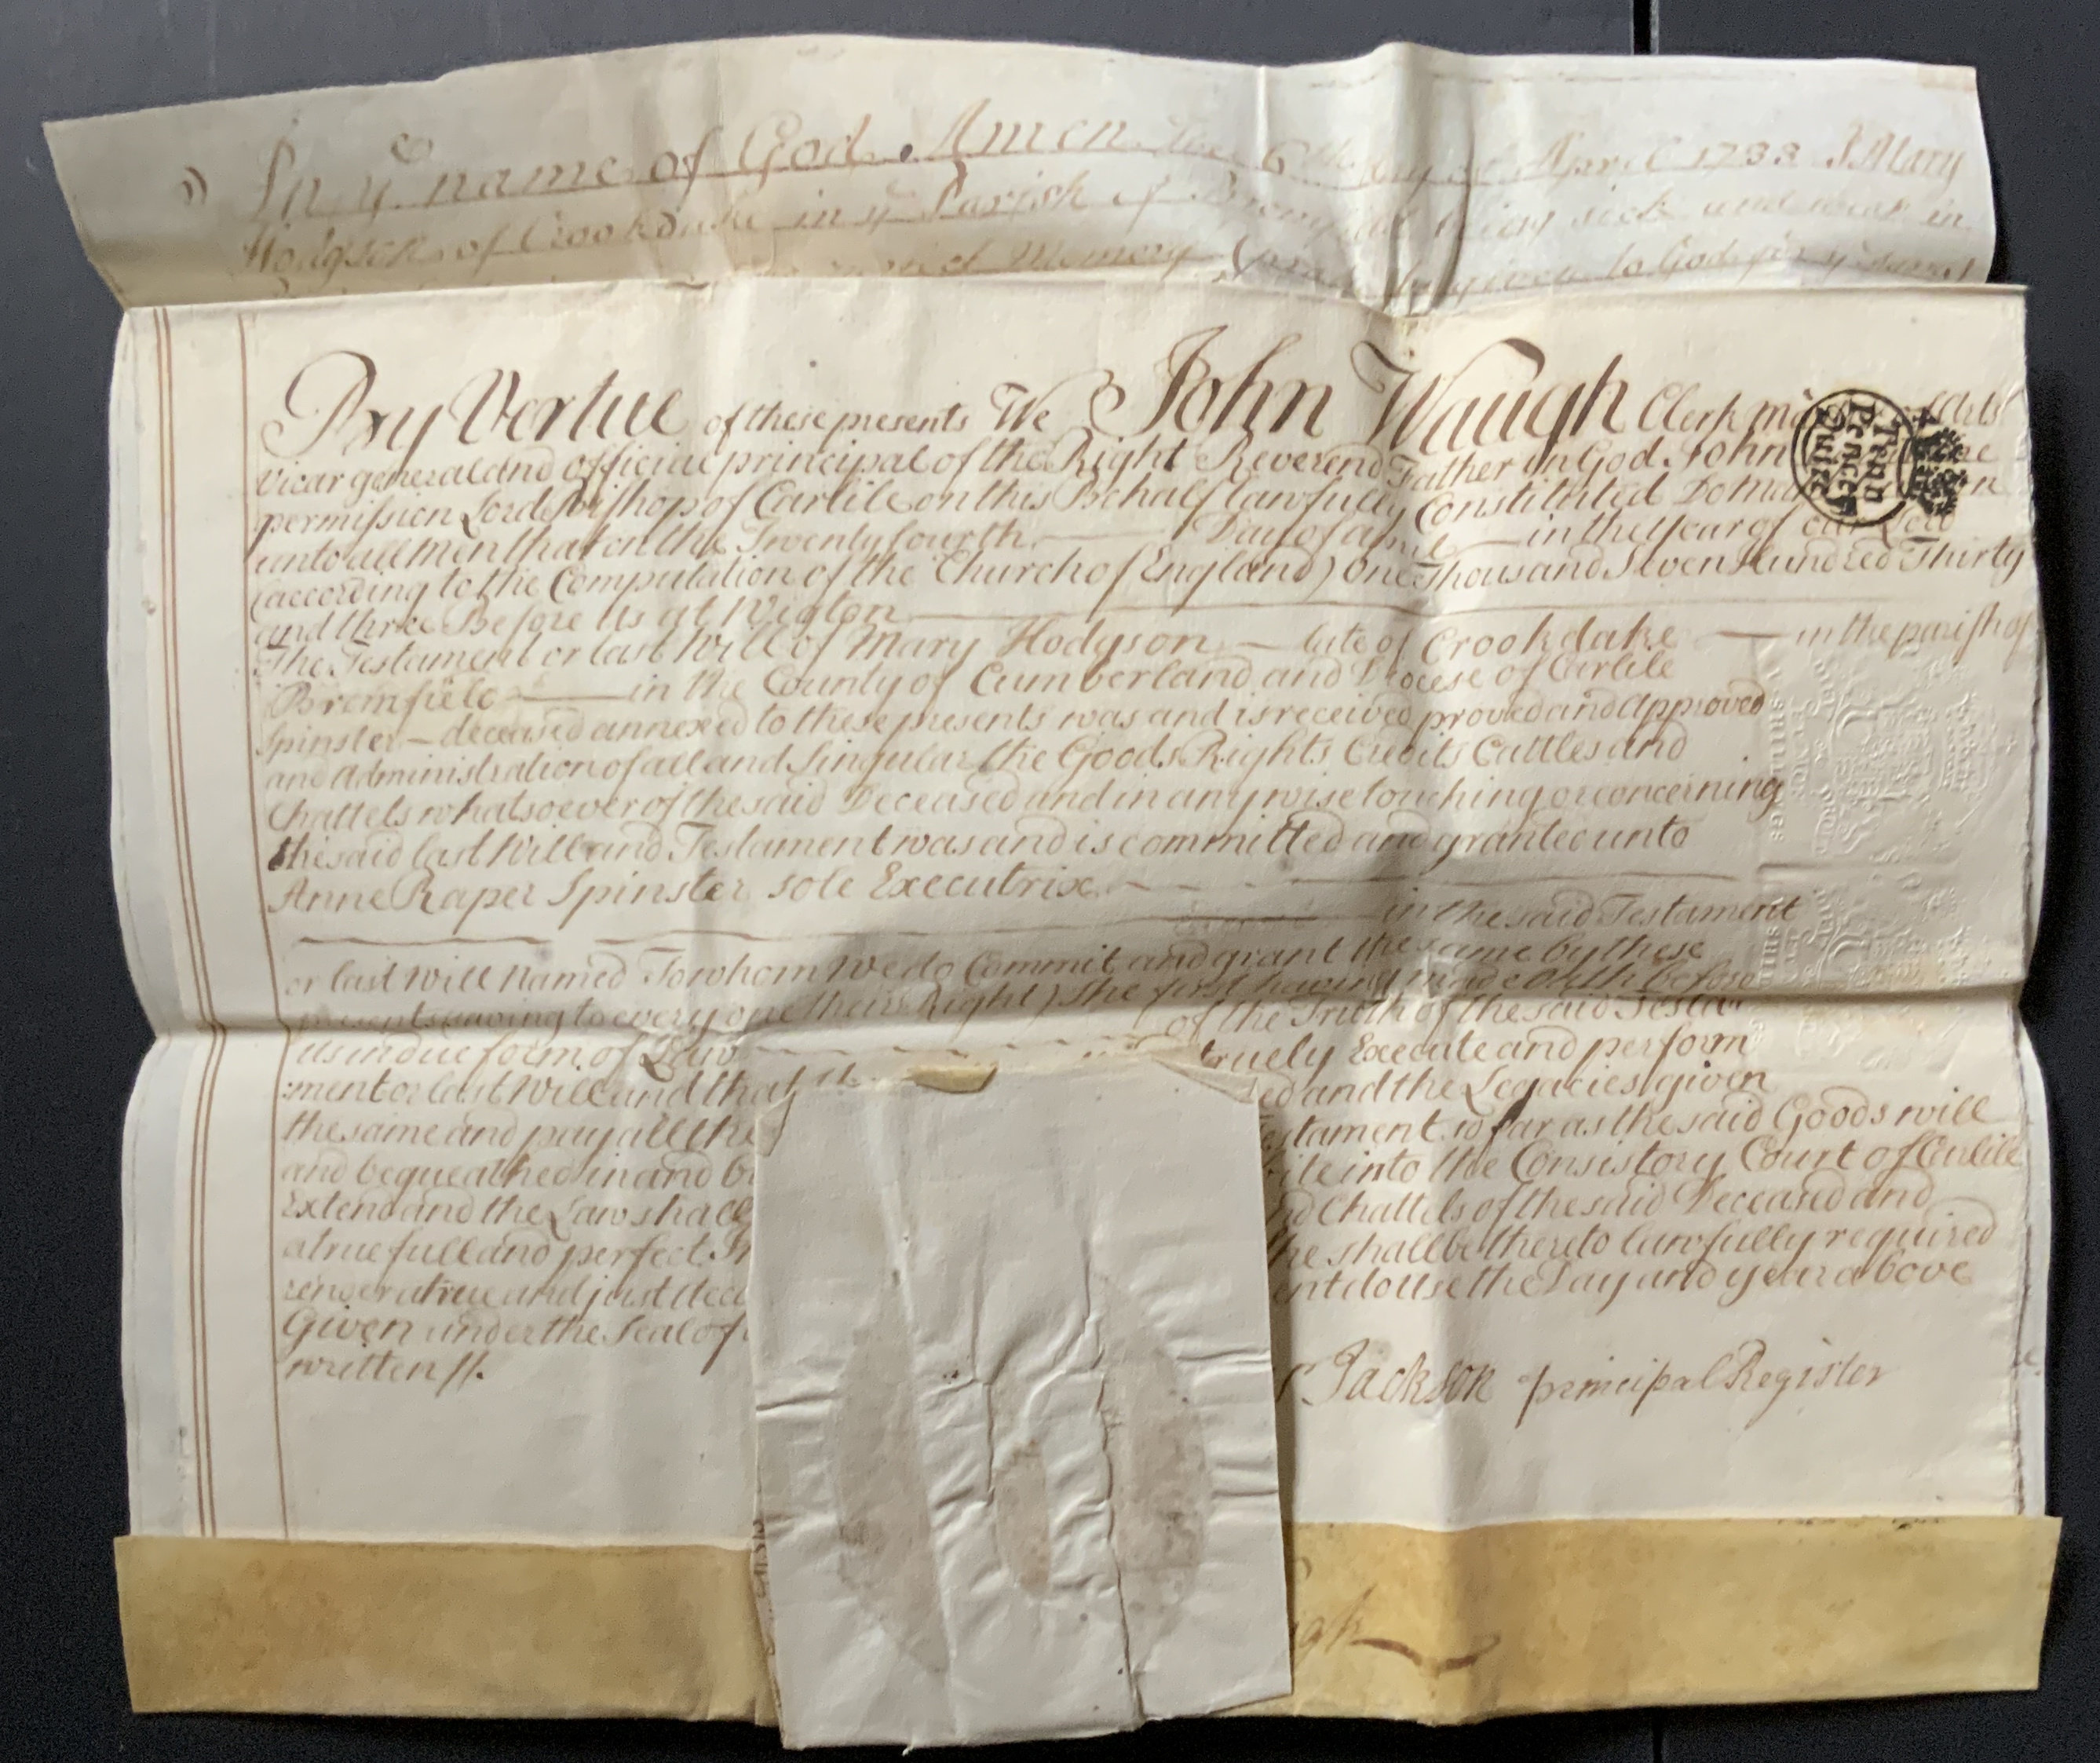 In ye name of God Amen the 6th day of April 1733 I Mary
Hodgson of Crookdake in ye Parish of Bromfield being sick and weak in
Memory (praise be given to God for ye same)
By Vertue of these presents We John Waugh Clerk
Vicar general and official principal of the Right Reverend Father in God John
permission Lord Bishop of Carlile on this Behalf lawfully Constituted Do
unto all men that on the Twenty fourth Day of April in the Year of our Lord
(according to the Computation of the Church of England) One Thousand Seven Hundred Thirty
and three Before Us at Wigton
The Testament or last Will of Mary Hodgson late of Crookdake in the parish of
Bromfield in the County of Cumberland and Diocese of Carlile
Spinster deceased annexed to these presents was and is received proved and approved
and administration of all and Singular the Goods Rights Credits Cattles and
Chattels whatsoever of the said Deceased and in any wise touching or concerning
the said last Will and Testament was and is committed and granted unto
Anne Raper Spinster sole Executrix
in the said Testament
or last Will Named To whom We do Commit and grant the same by these
presents saving to every one their Right) She first having made Oath before
us in due form of Law of the Truth of the said Testa
:ment or last Will and that truely Execute and perform
the same and pay all the ed and the Legacies given
and bequeathed in and by estament so far as the said Goods will
Extend and the Law shall into the Consistory Court of Carlile
a true full and perfect In nd Chattels of the said Deceased and
render a true and just Acco he shall be thereto lawfully required
Given under the Seal of ent do use the Day and year above
written //.
Jackson principal Register
gh
Penn
Pence